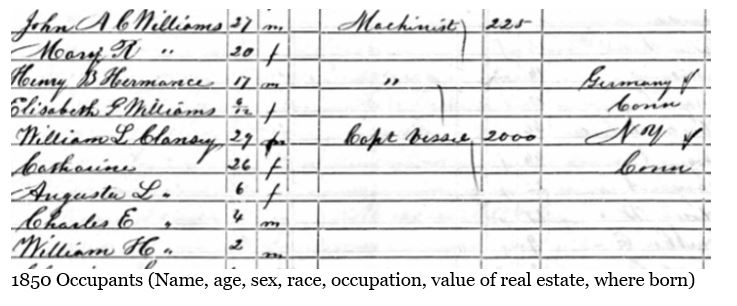 John A C Williams 27 m Machinist 225
Mary R " 20 f
Henry B Hermance 17 m " Germany
Elisabeth F Williams 6/12 f Conn
William L Clansey 29 Capt Vessel 2000 N Y
Catharine 26 f Conn
Augusta L " 6 f
Charles E " 4 m
William H " 2 m
1850 Occupants (Name, age, sex, race, occupation, value of real estate, where born)